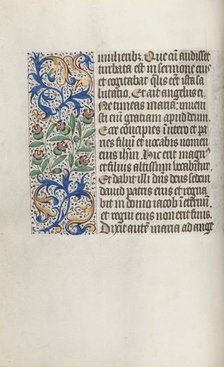 mulieribz Que cū audisset
turbata est in sermone eius
et cogitabat qualis esset ista sa
lutatio. Et ait angelus ei
Ne timeas maria: inueni
sti enī graciam apud deum.
Ecce concipies in utero et pa
ries filium et vocabis nomen
eius ihm. Hic erit magn9
et filius altissimi vocabitur.
Et dabit illi dn̄s deus sedem
dauid patris eius et regna
bit in domo iacob i eternū
et regni eius non erit finis.
Dixit autē maria ad ange